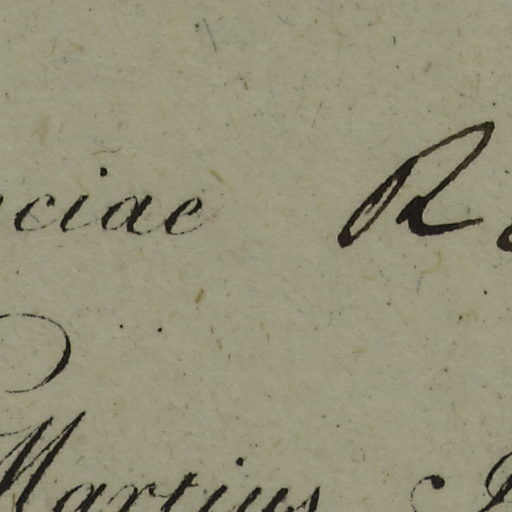 ciae R
Martius